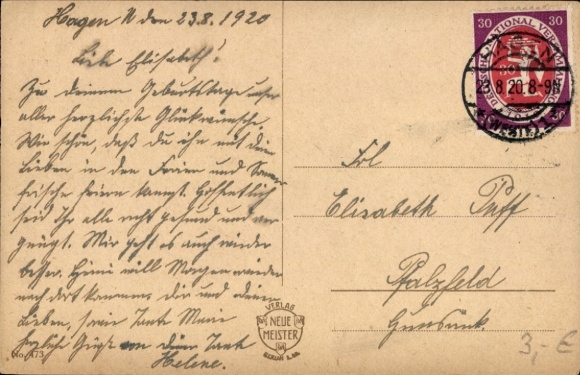 Hagen W den 23.8.1920
Liebe Elisabeth!
Zu deinem Geburtstage unser
aller herzlichste Glückwünsche.
Wie schön, daß du ihn mit dein
Lieben in den Ferien und Sommer
frische feiern kannst. Hoffentlich
seid Ihr alle recht gesund und ver
gnügt. Mir geht es auch wieder
besser. will Morgen wieder
nach dort kommen, dir und deinen
Lieben, sowie Tante Marie
herzliche Grüße von deiner Tante
Helene.
No. 473
VERLAG
NEUE
MEISTER
BERLIN S.
30 30
DEUTSCHE NATIONALVERSAMMLUNG
HAGEN
23 8 20 8-9N
(WESTF.)
Frl
Elisabeth Puff
Pfalzfeld
Hunsrück.
3,- €